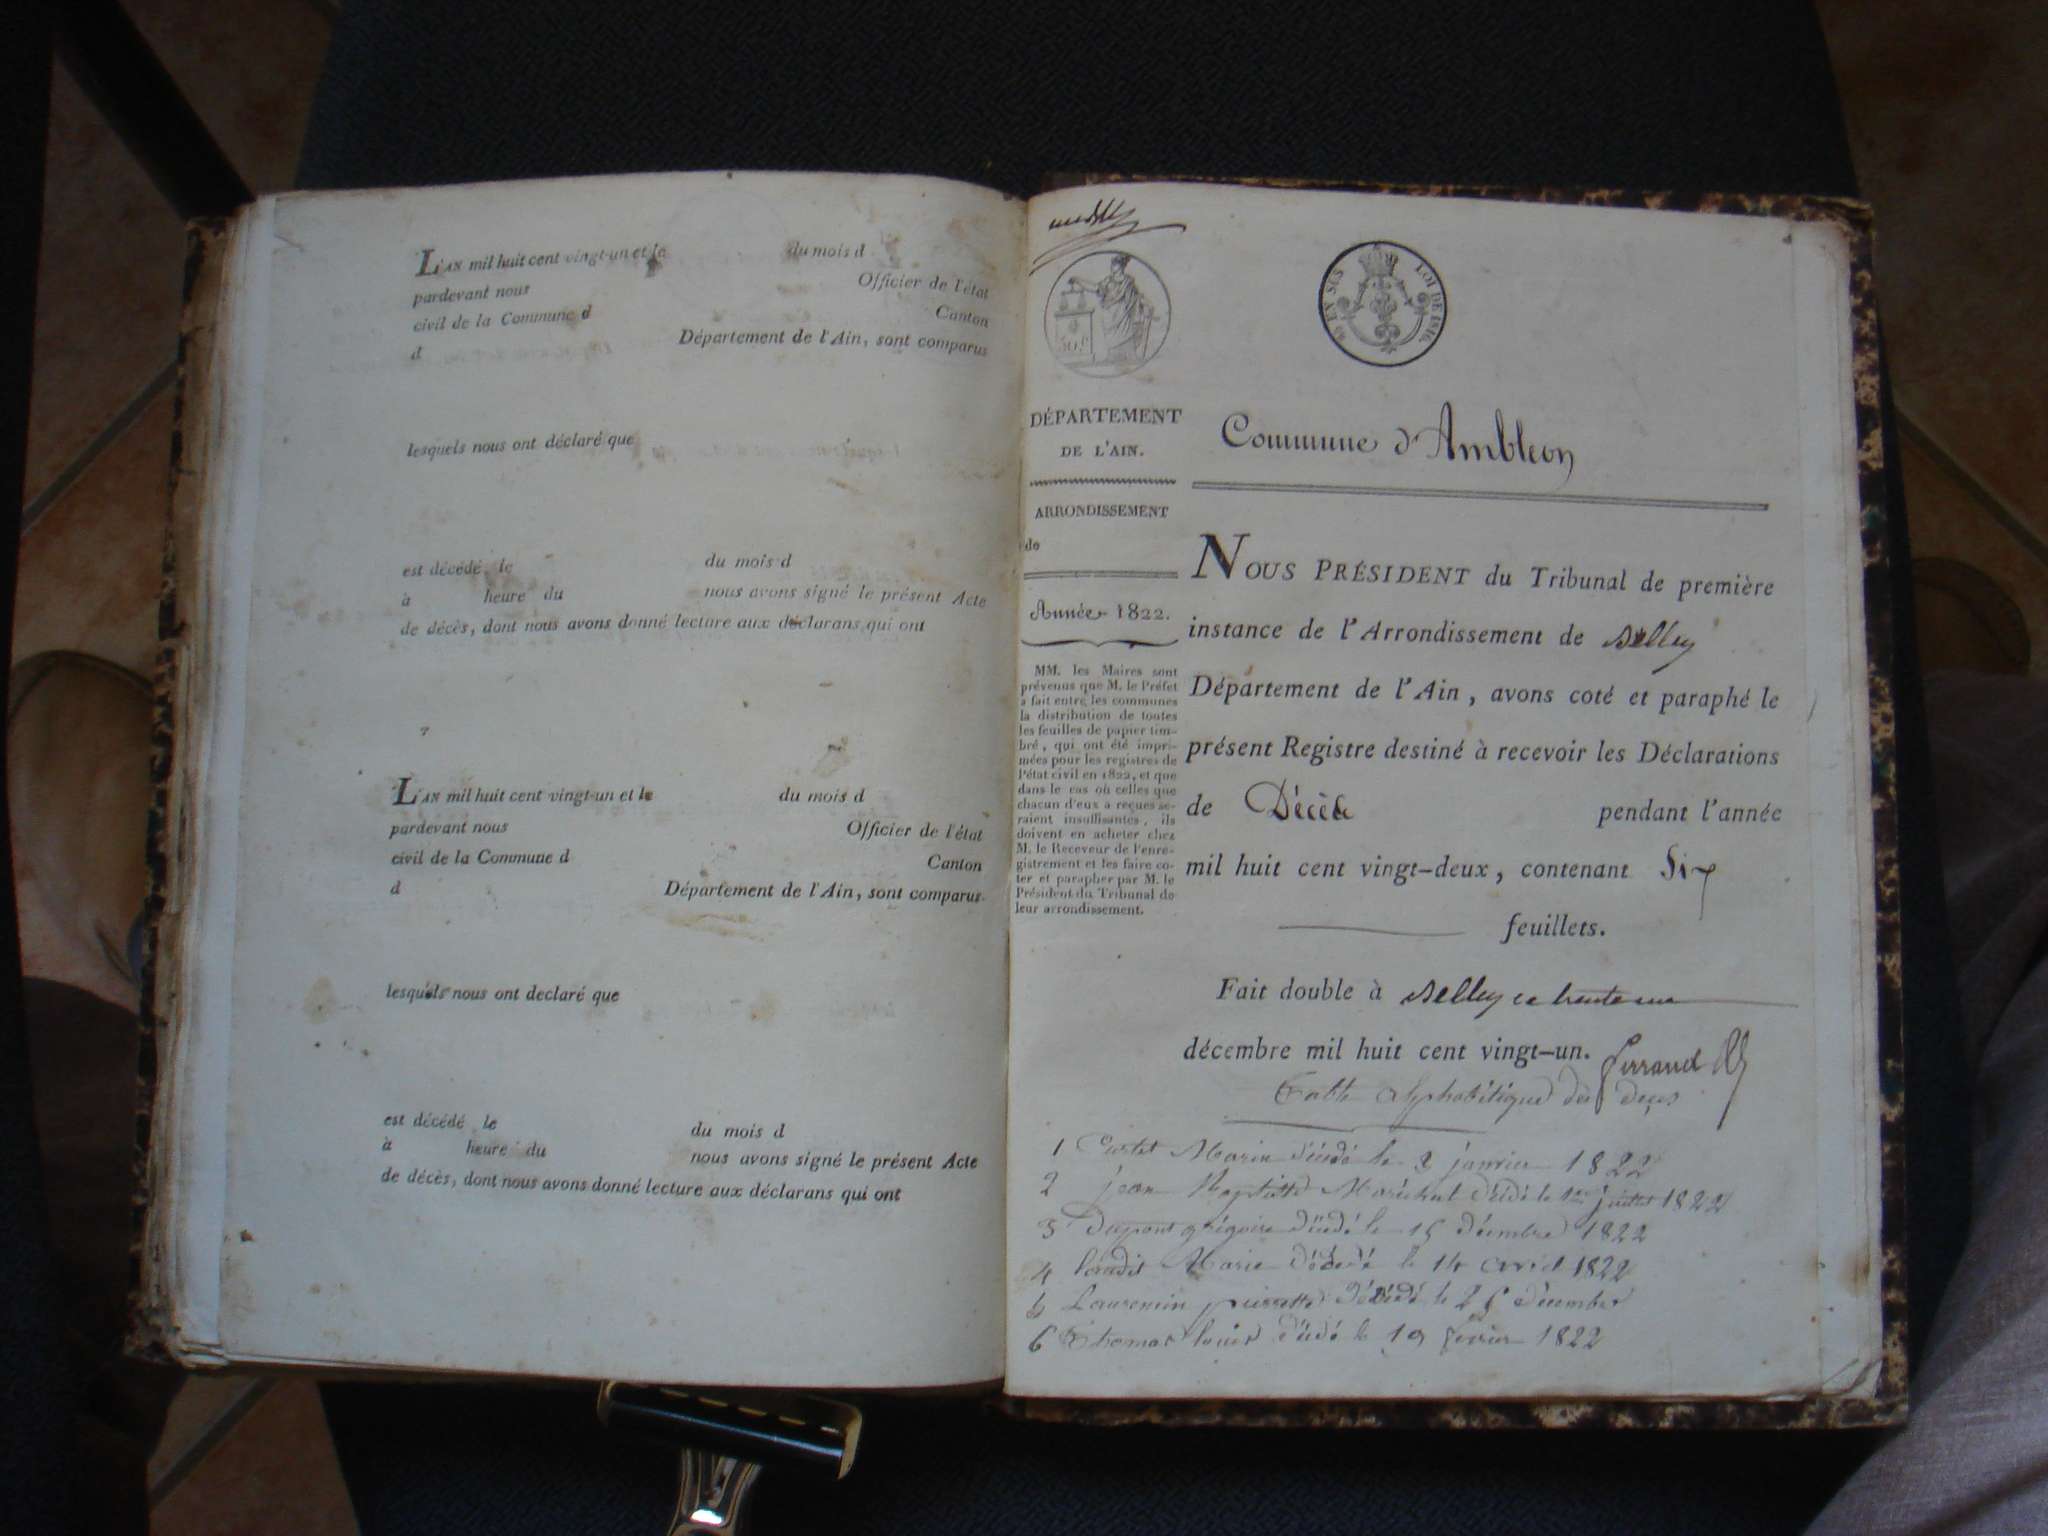 L'AN mil huit cent vingt-un et le du mois d
pardevant nous Officier de l'état
civil de la Commune d Canton
d Département de l'Ain, sont comparus
lesquels nous ont déclaré que
est décédé le du mois d
à heure du nous avons signé le présent Acte
de décès, dont nous avons donné lecture aux déclarans qui ont
L'AN mil huit cent vingt-un et le du mois d
pardevant nous Officier de l'état
civil de la Commune d Canton
d Département de l'Ain, sont comparus
lesquels nous ont declaré que
est décédé le du mois d
à heure du nous avons signé le présent Acte
de décès, dont nous avons donné lecture aux déclarans qui ont
LOI DE 1816
EN SUS
DÉPARTEMENT
DE L'AIN.
ARRONDISSEMENT
de
Année 1822.
MM. les Maires sont
prévenus que M. le Préfet
a fait entre les communes
la distribution de toutes
les feuilles de papier tim-
bré, qui ont été impri-
mées pour les registres de
l'état civil en 1822, et que
dans le cas où celles que
chacun d'eux a reçues se-
raient insuffisantes, ils
doivent en acheter chez
M. le Receveur de l'enre-
gistrement et les faire co-
ter et parapher par M. le
Président du Tribunal de
leur arrondissement.
Commune d'Ambleon
NOUS PRÉSIDENT du Tribunal de première
instance de l'Arrondissement de Belley
Département de l'Ain, avons coté et paraphé le
présent Registre destiné à recevoir les Déclarations
de Décès pendant l'année
mil huit cent vingt-deux, contenant Six
feuillets.
Fait double à Belley ce trente un
décembre mil huit cent vingt-un.
Table alphabétique des décès
1 Curtet Marin décédé le 2 janvier 1822
2 jean Baptiste Maréchal décédé le 1er juillet 1822
3 Dupont grégoire décédé le 15 décembre 1822
4 Marie décédé le 14 avril 1822
5 Laurencin pierrette décédé le 25 décembre
6 Thomas louis décédé le 19 février 1822